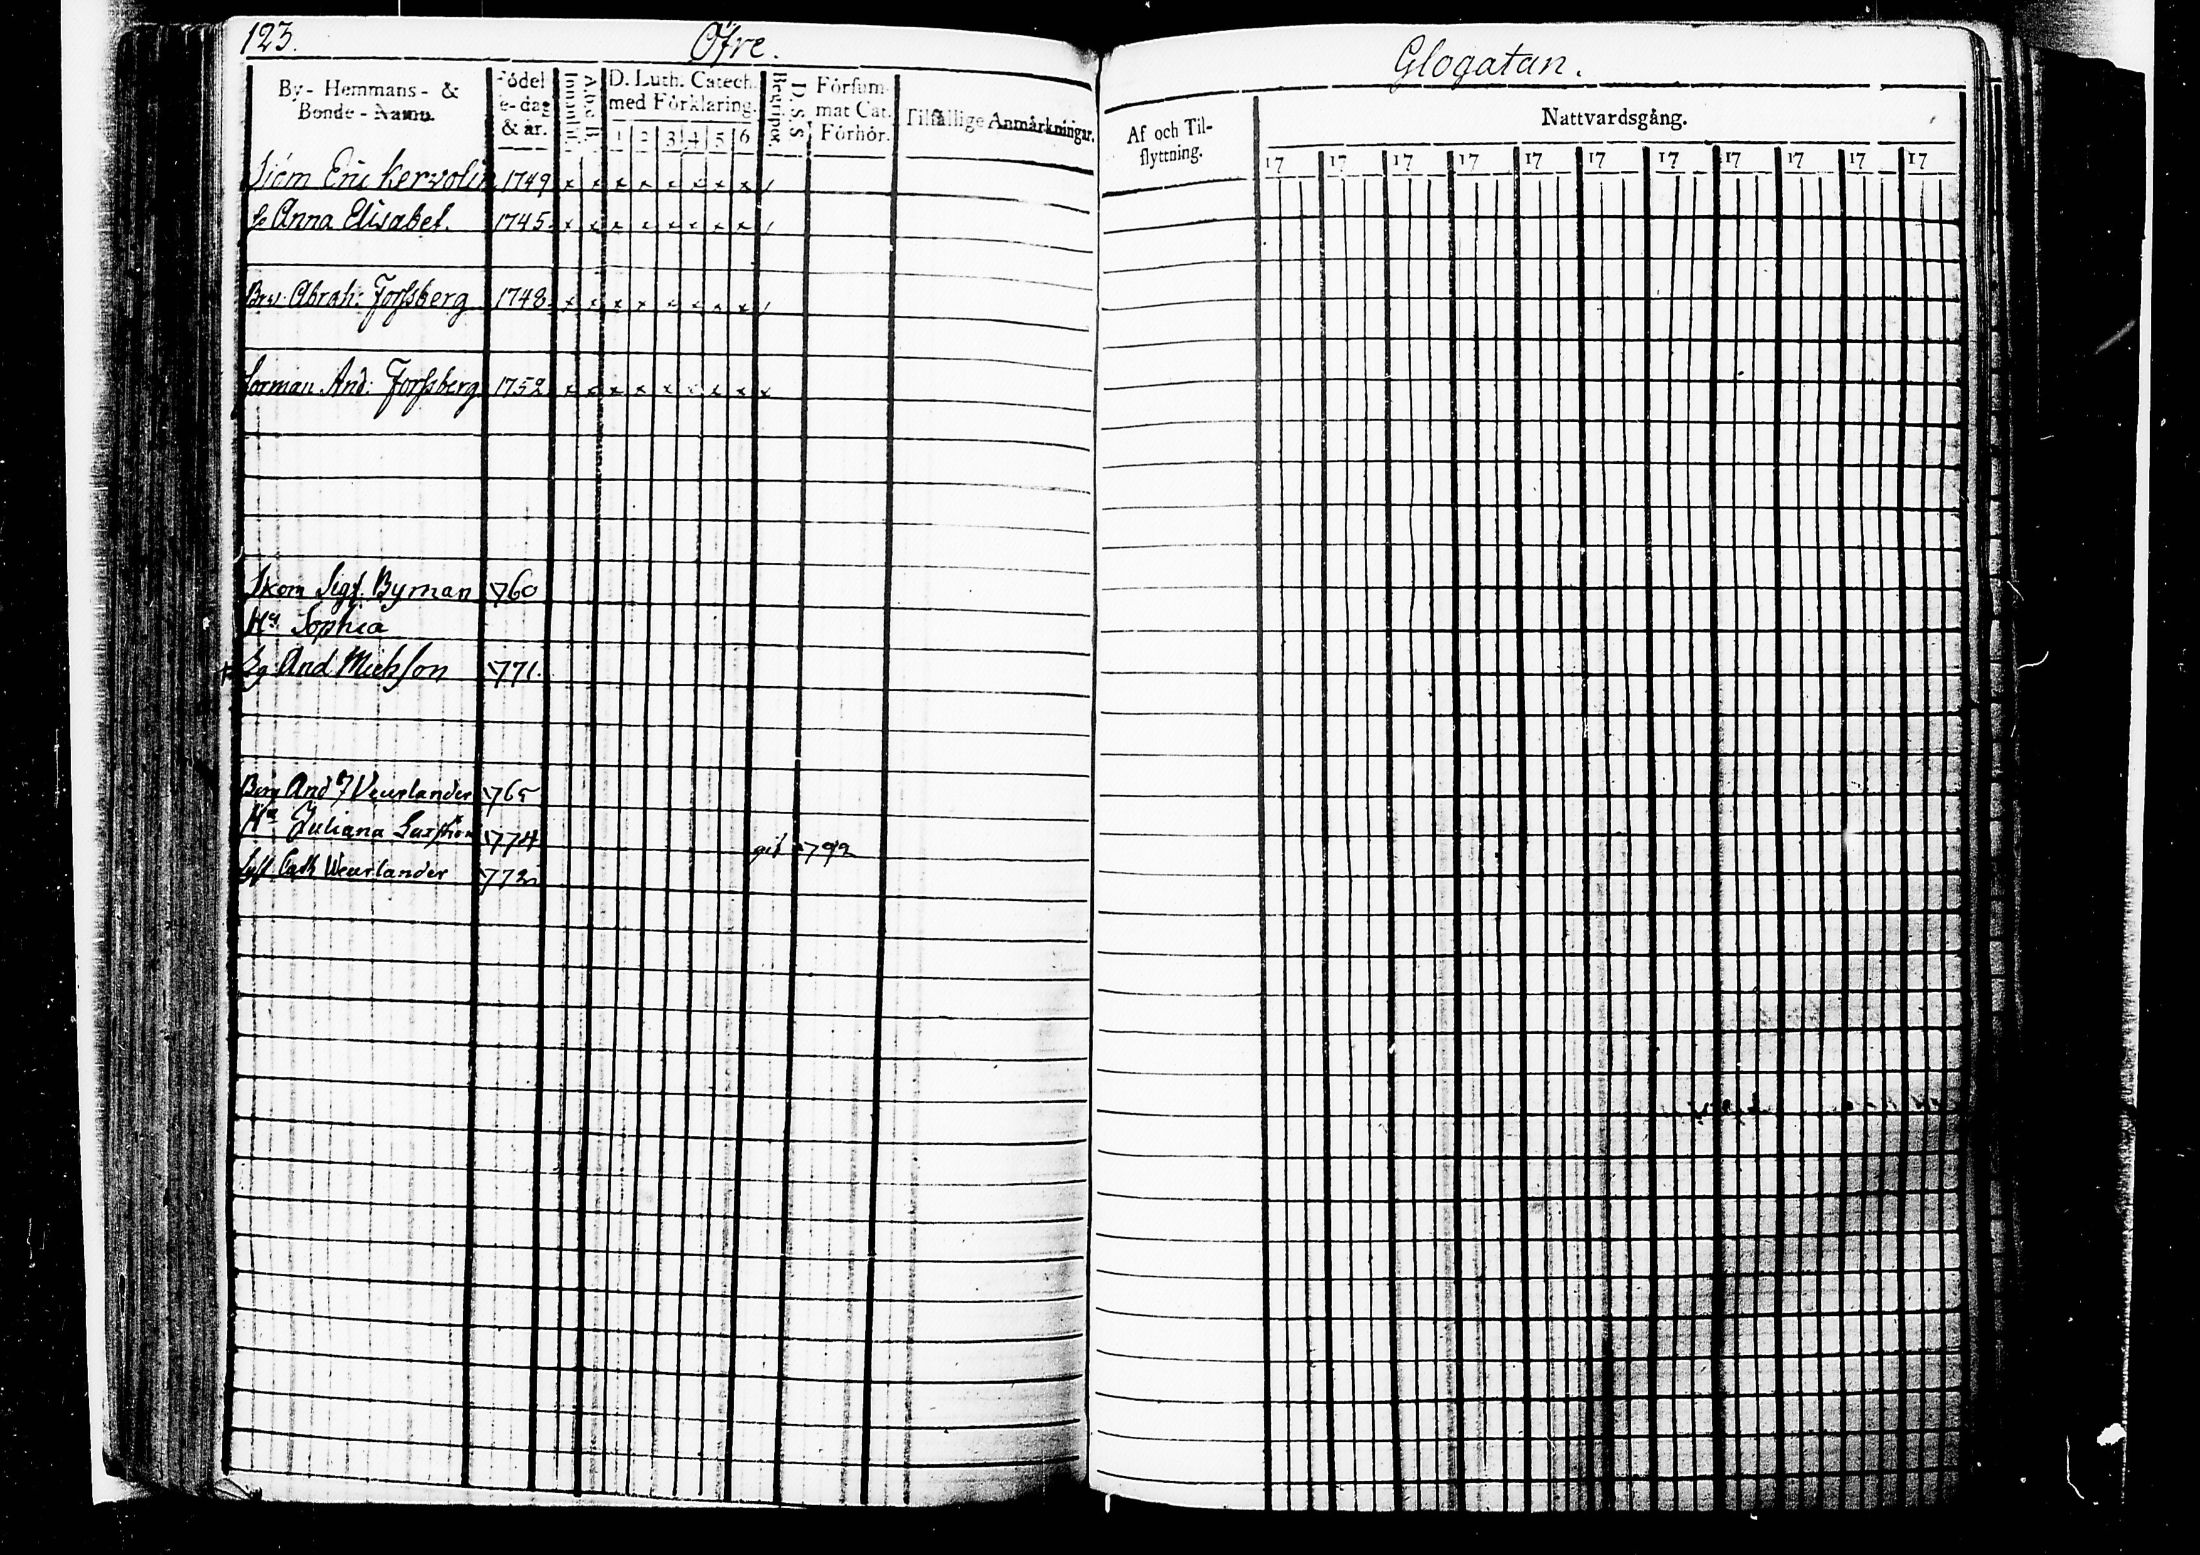 123.
Öfre.
By- Hemmans- &
Bonde-Namn.
Födel
e-dag
& år.
Innanläs.
A.b.c.B.
D. Luth. Catech.
med Förklaring.
1 2 3 4 5 6
Begripet.
D. S. S.
Försum-
mat Cat.
Förhör.
Tilfällige Anmärkningar.
Sjöm Eric Kervolin 1749 x x x x x x x x /
h Anna Elisabet. 1745. x x x x x x x x /
Abrah: Forssberg 1748. x x x x x x x x /
And: Forssberg 1752 x x x x x x x x x
Skom Sigf. Byman 760
Hu Sophia
And Michsson 771.
And Weurlander 765
Hu Juliana 774
gift 1792
Cath Weurlander 772
Glogatan.
Af och Til-
flyttning.
Nattvardsgång.
17 17 17 17 17 17 17 17 17 17 17